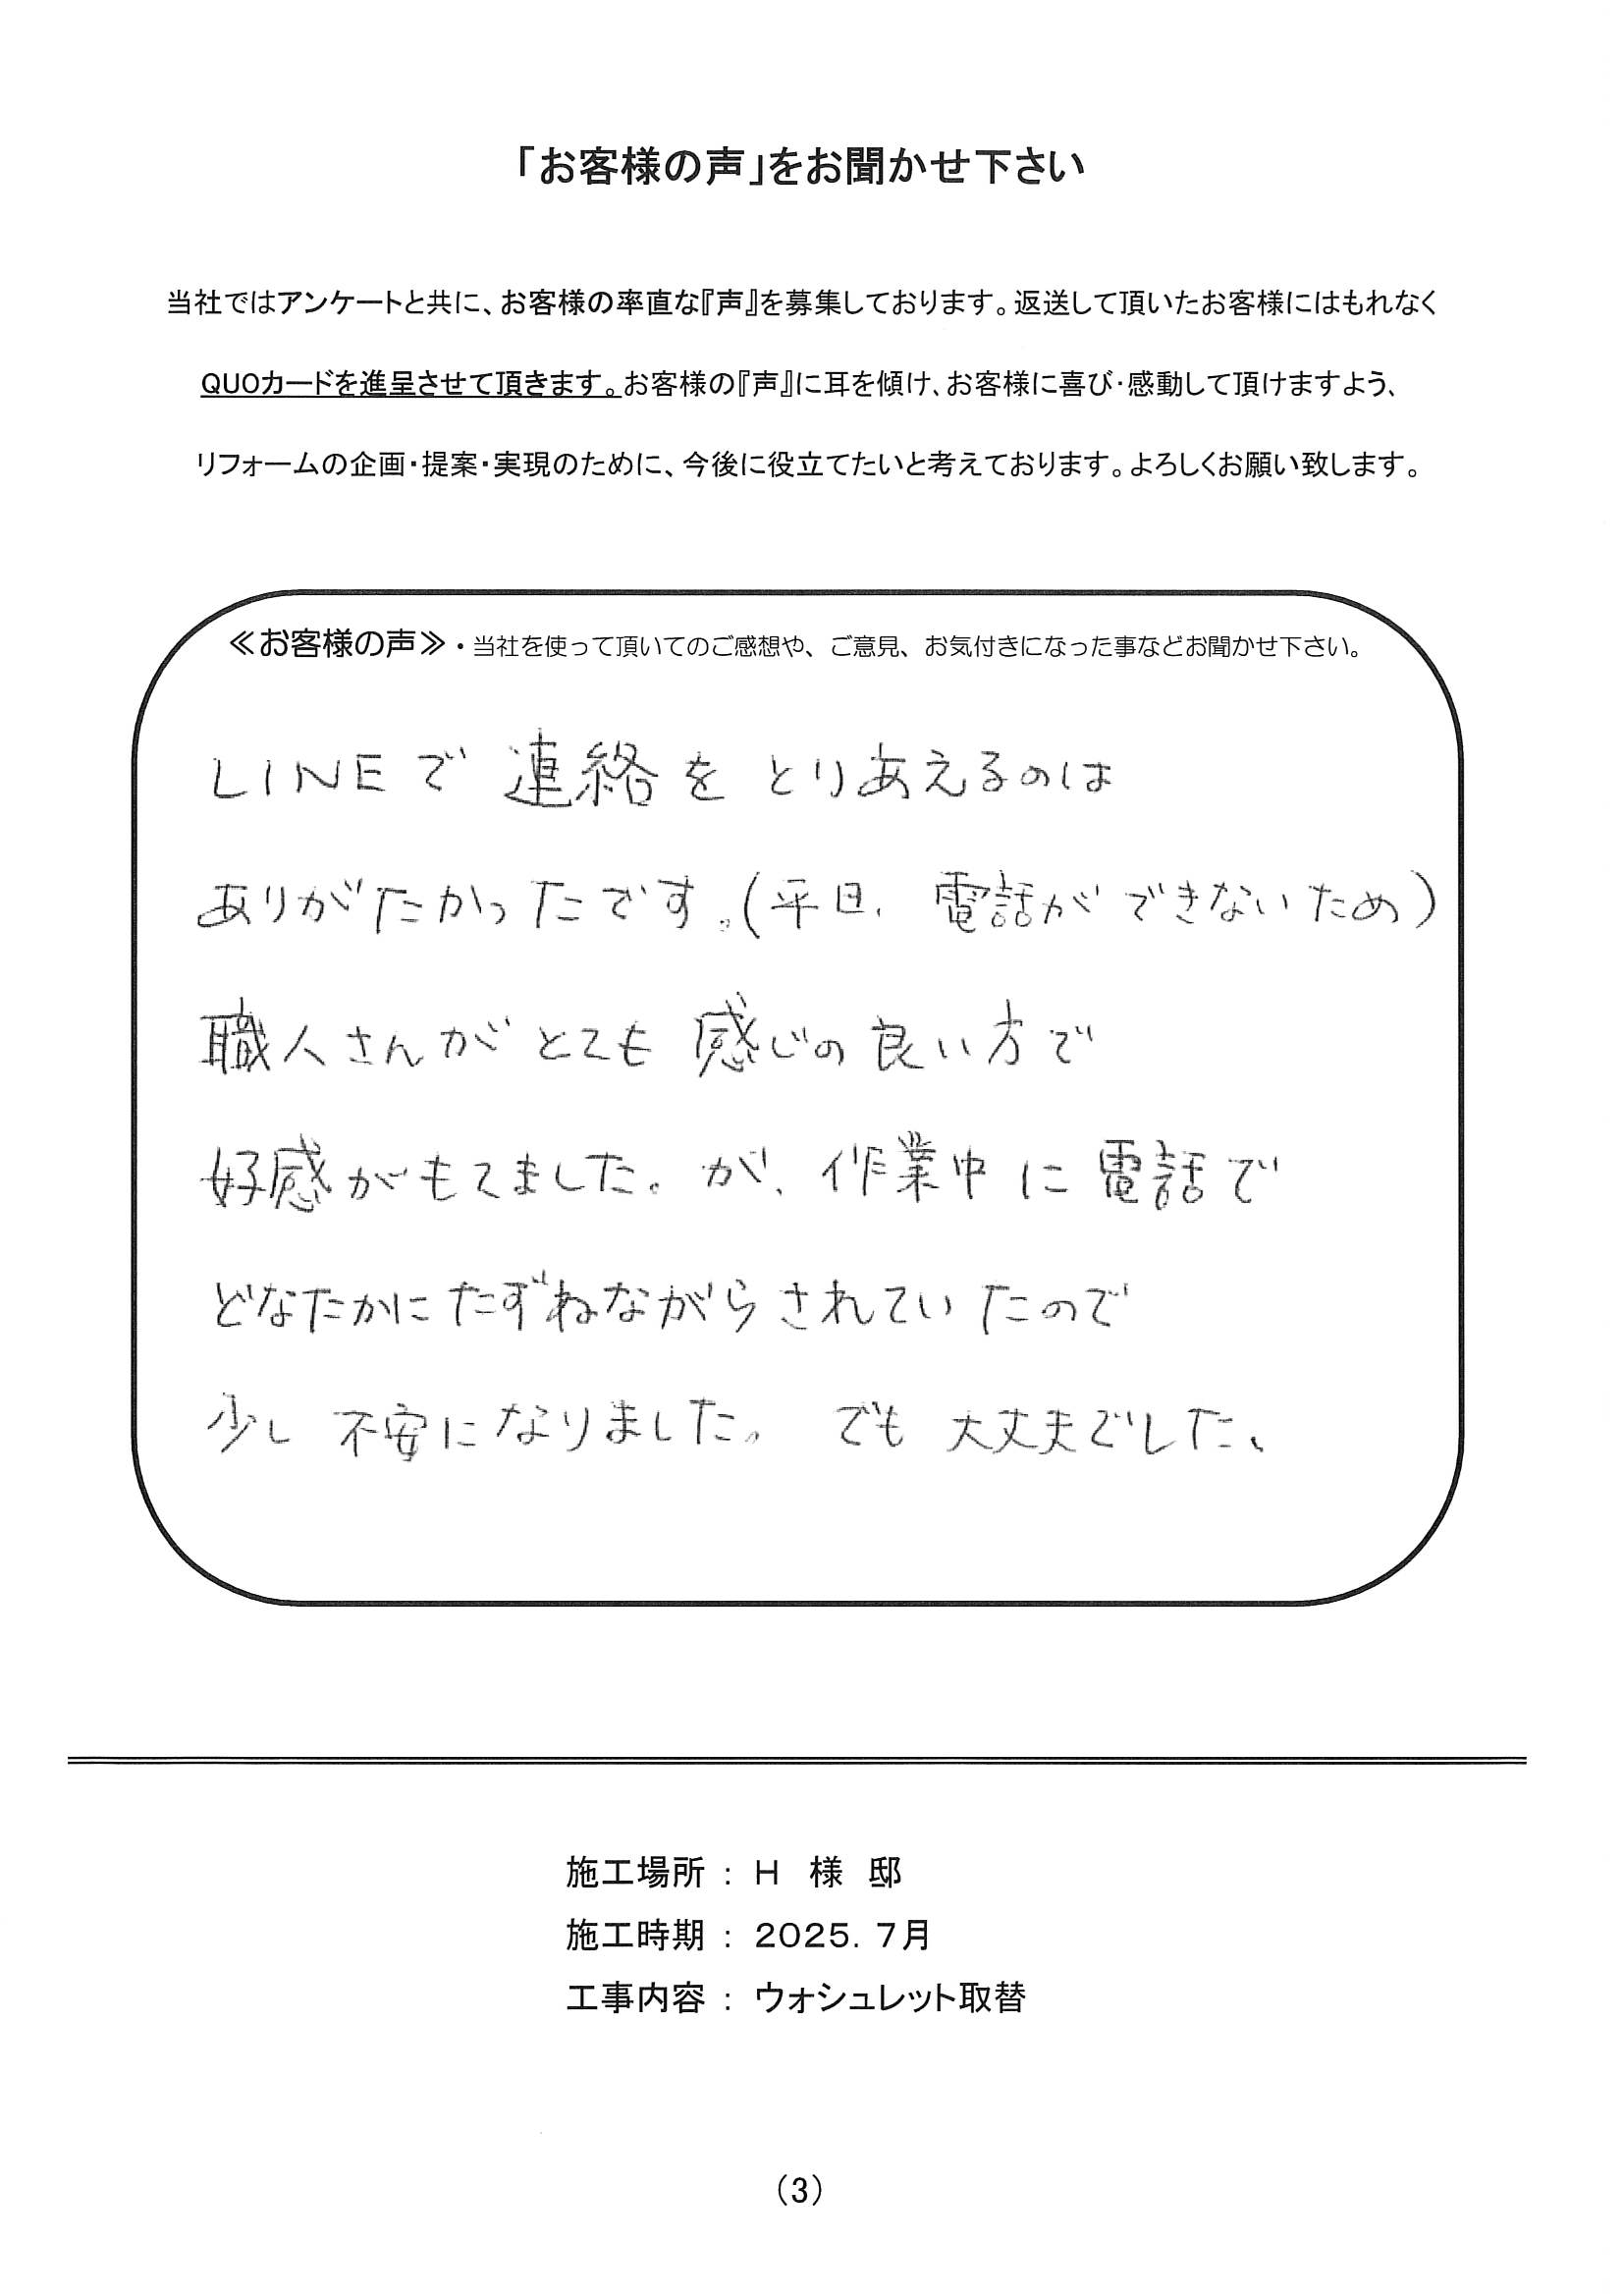 「お客様の声」をお聞かせ下さい
当社ではアンケートと共に、お客様の率直な『声』を募集しております。返送して頂いたお客様にはもれなく
QUOカードを進呈させて頂きます。お客様の『声』に耳を傾け、お客様に喜び・感動して頂けますよう、
リフォームの企画・提案・実現のために、今後に役立てたいと考えております。よろしくお願い致します。
≪お客様の声≫・当社を使って頂いてのご感想や、ご意見、お気付きになった事などお聞かせ下さい。
LINEで連絡をとりあえるのは
ありがたかったです。(平日、電話ができないため)
職人さんがとても感じの良い方で
好感がもてました。が、作業中に電話で
どなたかにたずねながらされていたので
少し不安になりました。でも大丈夫でした、
施工場所 : H 様 邸
施工時期 : 2025. 7月
工事内容 : ウォシュレット取替
(3)